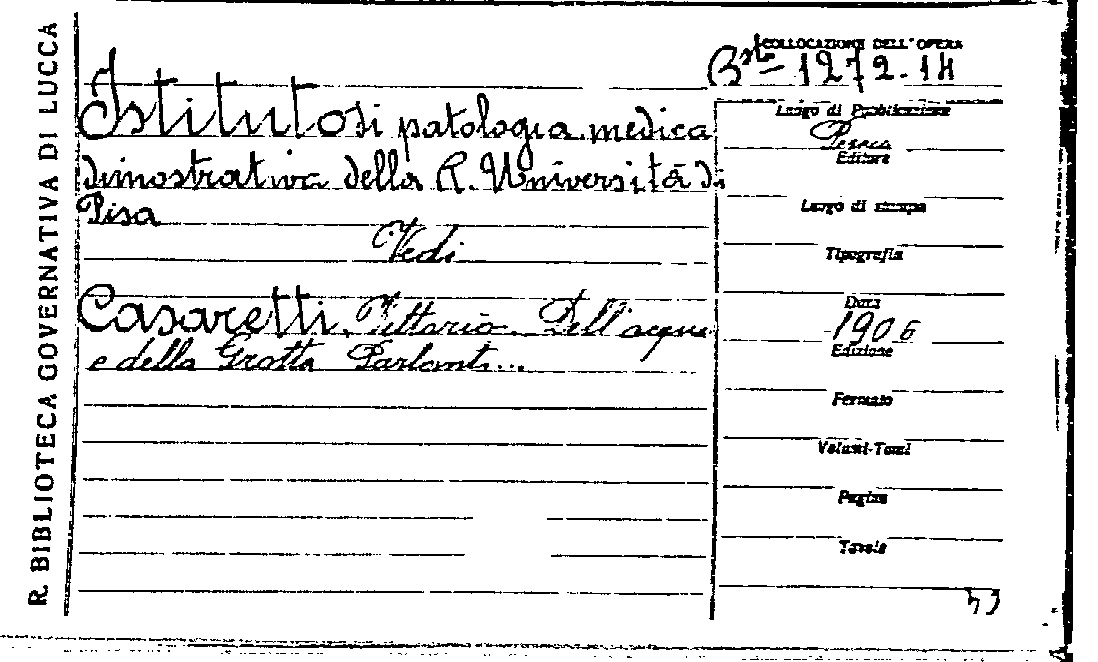 R. BIBLIOTECA GOVERNATIVA DI LUCCA
COLLOCAZIONE DELL'OPERA
Bta 1272.14
Istituto di patologia medica
dimostrativa della R. Università di
Pisa
Vedi
Casaretti Vittorio. Dell'acque
e della Grotta Parlanti...
Luogo di Pubblicazione
Pescia
Editore
Luogo di stampa
Tipografia
Data
1906
Edizione
Formato
Volumi-Tomi
Pagine
Tavole